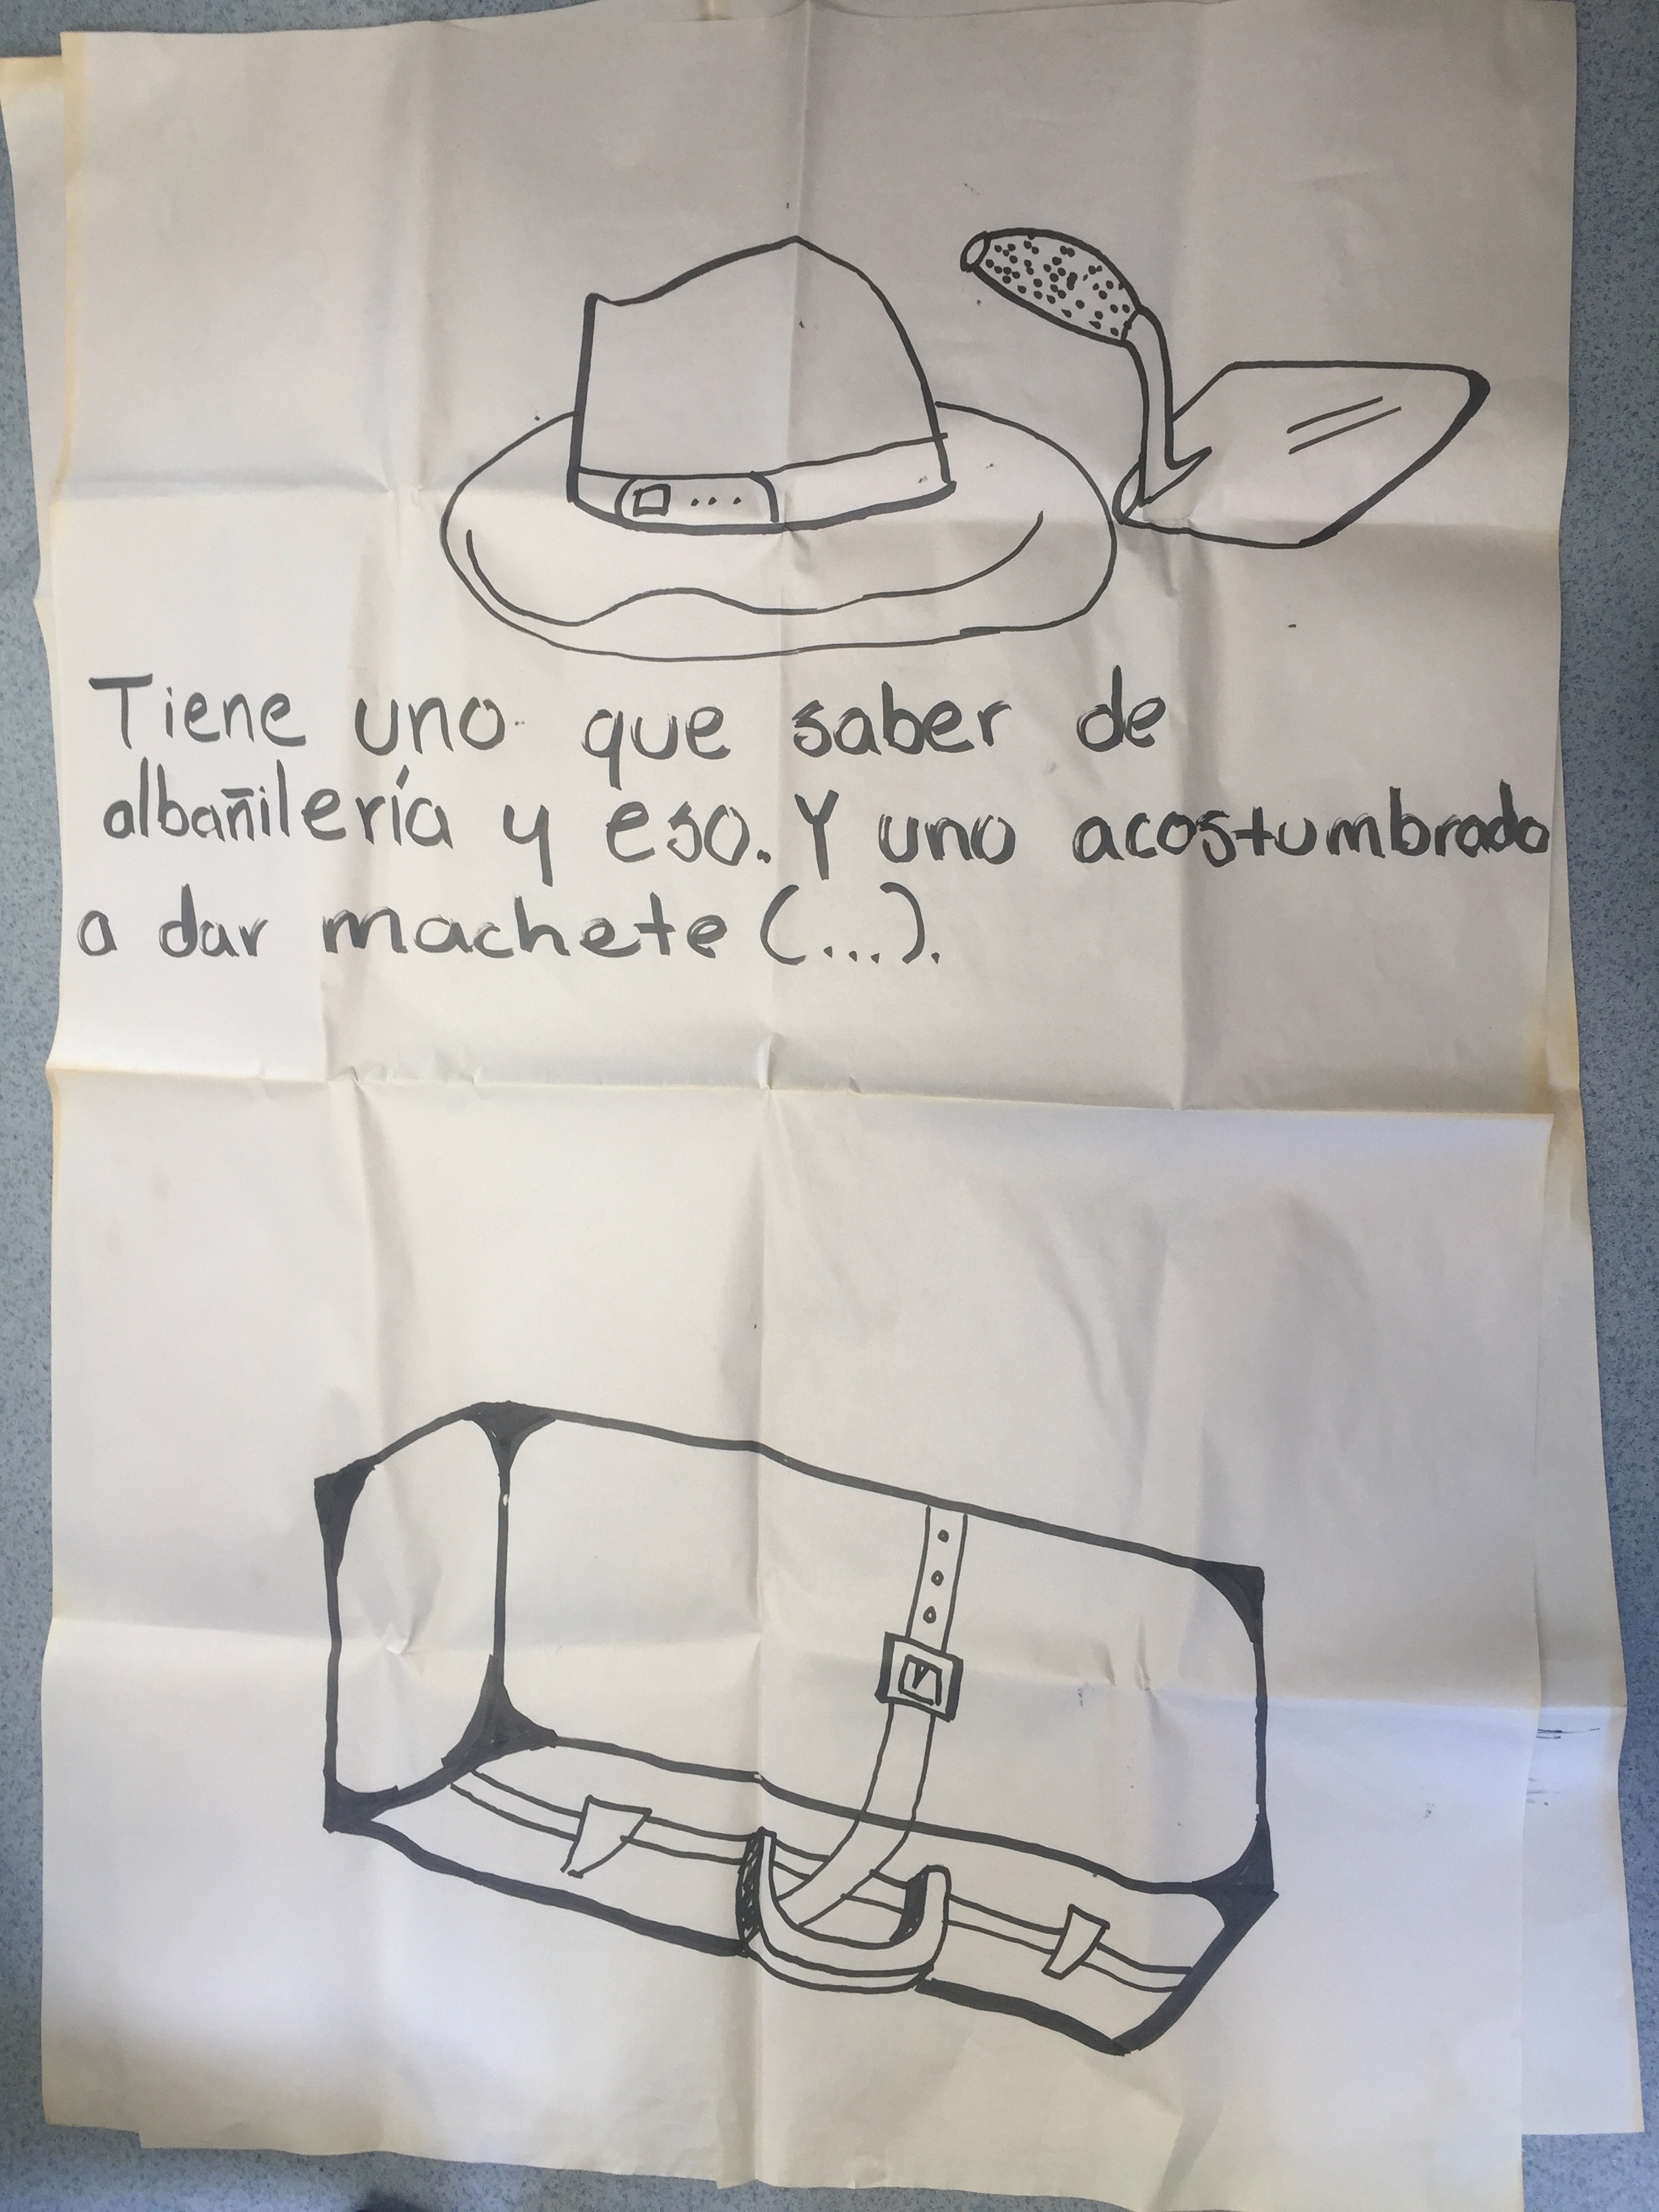 Tiene uno que saber de
albañilería y eso. Y uno acostumbrado
a dar machete (...).